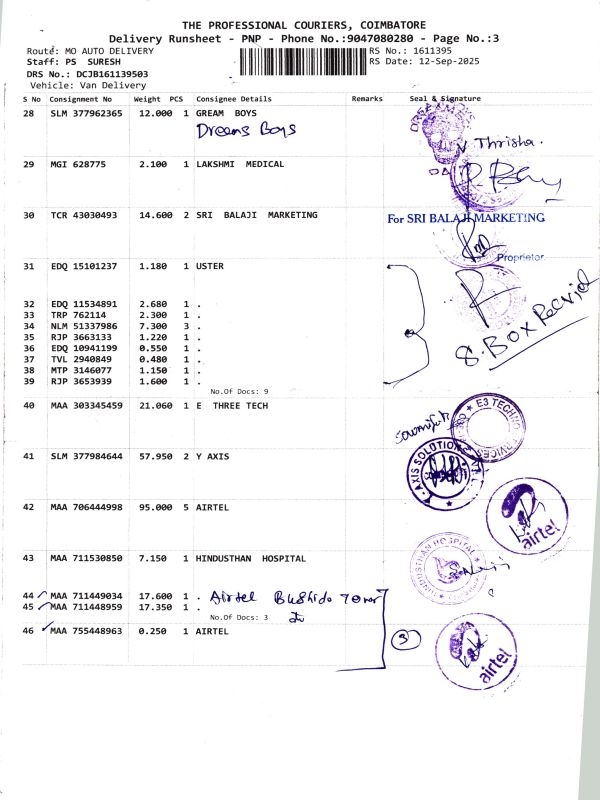 THE PROFESSIONAL COURIERS, COIMBATORE
Delivery Runsheet - PNP - Phone No.:9047080280 - Page No.:3
Route: MO AUTO DELIVERY RS No.: 1611395
Staff: PS SURESH RS Date: 12-Sep-2025
DRS No.: DCJB161139503
Vehicle: Van Delivery
S No Consignment No Weight PCS Consignee Details Remarks Seal & Signature
28 SLM 377962365 12.000 1 GREAM BOYS
Dreams Boys
N Thrisha.
29 MGI 628775 2.100 1 LAKSHMI MEDICAL
30 TCR 43030493 14.600 2 SRI BALAJI MARKETING
For SRI BALAJI MARKETING
Proprietor
31 EDQ 15101237 1.180 1 USTER
32 EDQ 11534891 2.680 1 .
33 TRP 762114 2.300 1 .
34 NLM 51337986 7.300 3 .
35 RJP 3663133 1.220 1 .
36 EDQ 10941199 0.550 1 .
37 TVL 2940849 0.480 1 .
38 MTP 3146077 1.150 1 .
39 RJP 3653939 1.600 1 .
8. BOX Recvied
No.Of Docs: 9
40 MAA 303345459 21.060 1 E THREE TECH
E3 TECHNO
41 SLM 377984644 57.950 2 Y AXIS
AXIS SOLUTIONS
42 MAA 706444998 95.000 5 AIRTEL
airtel
43 MAA 711530850 7.150 1 HINDUSTHAN HOSPITAL
HINDUSTHAN HOSPITAL
44 MAA 711449034 17.600 1 . Airtel Bushido Tower
45 MAA 711448959 17.350 1 .
No.Of Docs: 3
46 MAA 755448963 0.250 1 AIRTEL
3
airtel